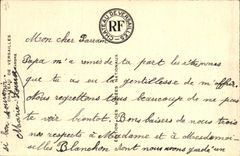 CHATEAU DE VERSAILLES
RF
Mon cher Parrain
Papa m'a remis de ta part les étrennes
que tu as eu la gentillesse de m'offrir.
Nous regrettons tous beaucoup de ne pas
te voir bientôt. Bons baisers de nous trois
nos respects à Madame et à Mesdemoi-
selles Blanchon dont nous avons gardé un
si bon souvenir.
Marie-Louise